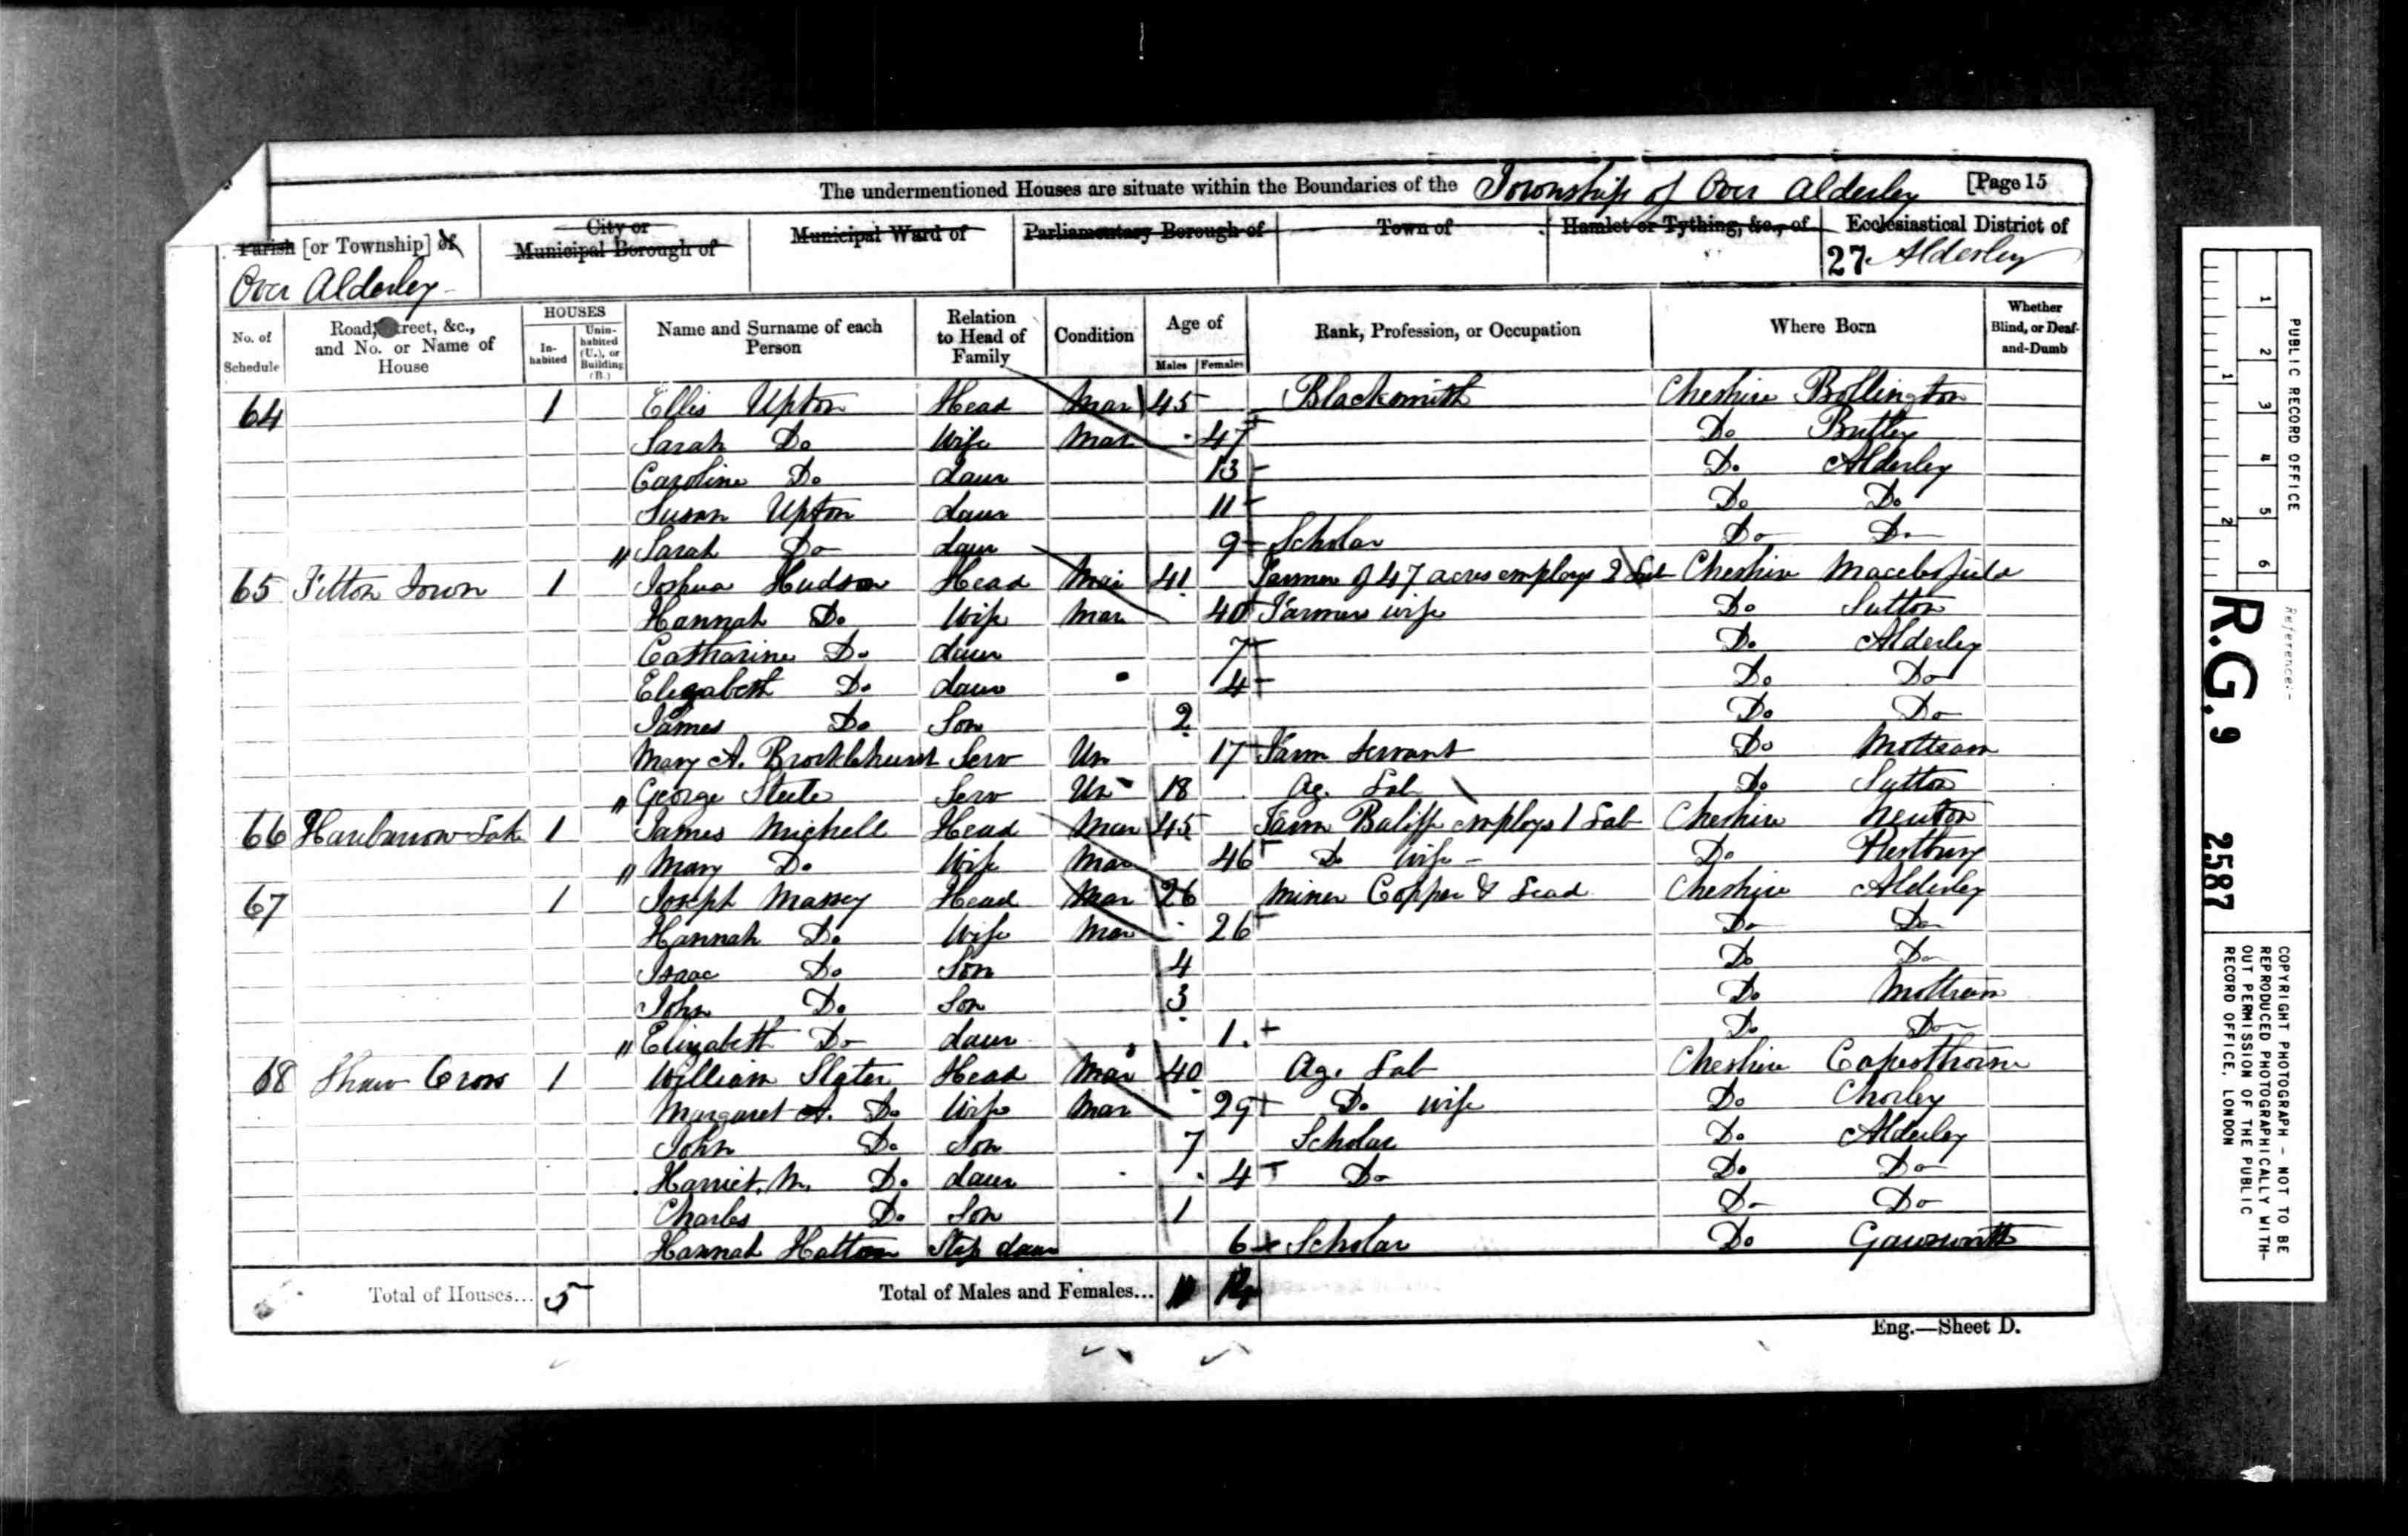 The undermentioned Houses are situate within the Boundaries of the Township of Over Alderley [Page 15
Parish [or Township] of Over Alderley
City or Municipal Borough of
Municipal Ward of
Parliamentary Borough of
Town of
Hamlet or Tything, &c., of
Ecclesiastical District of 27 Alderley
No. of Schedule
Road, Street, &c., and No. or Name of House
HOUSES
In-habited
Unin-habited (U.), or Building (B.)
Name and Surname of each Person
Relation to Head of Family
Condition
Age of
Males Females
Rank, Profession, or Occupation
Where Born
Whether Blind, or Deaf-and-Dumb
64 1 Ellis Upton Head Mar 45 Blacksmith Cheshire Bollington
Sarah Do Wife Mar 47 Do Butley
Caroline Do daur 13 Do Alderley
Susan Upton daur 11 Do Do
" Sarah Do daur 9 Scholar Do Do
65 Town 1 Joshua Hudson Head Mar 41 Farmer of 47 acres employs 2 Lab Cheshire Macclesfield
Hannah Do Wife Mar 40 Farmers wife Do Sutton
Catharine Do daur 7 Do Alderley
Elizabeth Do daur 4 Do Do
James Do Son 2 Do Do
Mary A. Brocklehurst Serv Un 17 Farm Servant Do Mottram
" George Steele Serv Un 18 Ag. Lab Do Sutton
66 1 James Michell Head Mar 45 Farm Baliff employs 1 Lab Cheshire Newton
" Mary Do Wife Mar 46 Do wife Do Prestbury
67 1 Joseph Massey Head Mar 26 Miner Copper & Lead Cheshire Alderley
Hannah Do Wife Mar 26 Do Do
Isaac Do Son 4 Do Do
John Do Son 3 Do Mottram
" Elizabeth Do daur 1 Do Do
68 Shaw Cross 1 William Slater Head Mar 40 Ag. Lab Cheshire Capesthorne
Margaret A. Do Wife Mar 29 Do wife Do Chorley
John Do Son 7 Scholar Do Alderley
Harriet M. Do daur 4 Do Do Do
Charles Do Son 1 Do Do
Hannah Hatton Step daur 6 Scholar Do Gawsworth
Total of Houses... 5 Total of Males and Females... 11 14
Eng.—Sheet D.
1 2 3 4 5 6
1 2
PUBLIC RECORD OFFICE
Reference:-
R.G. 9 2587
COPYRIGHT PHOTOGRAPH - NOT TO BE
REPRODUCED PHOTOGRAPHICALLY WITH-
OUT PERMISSION OF THE PUBLIC
RECORD OFFICE, LONDON